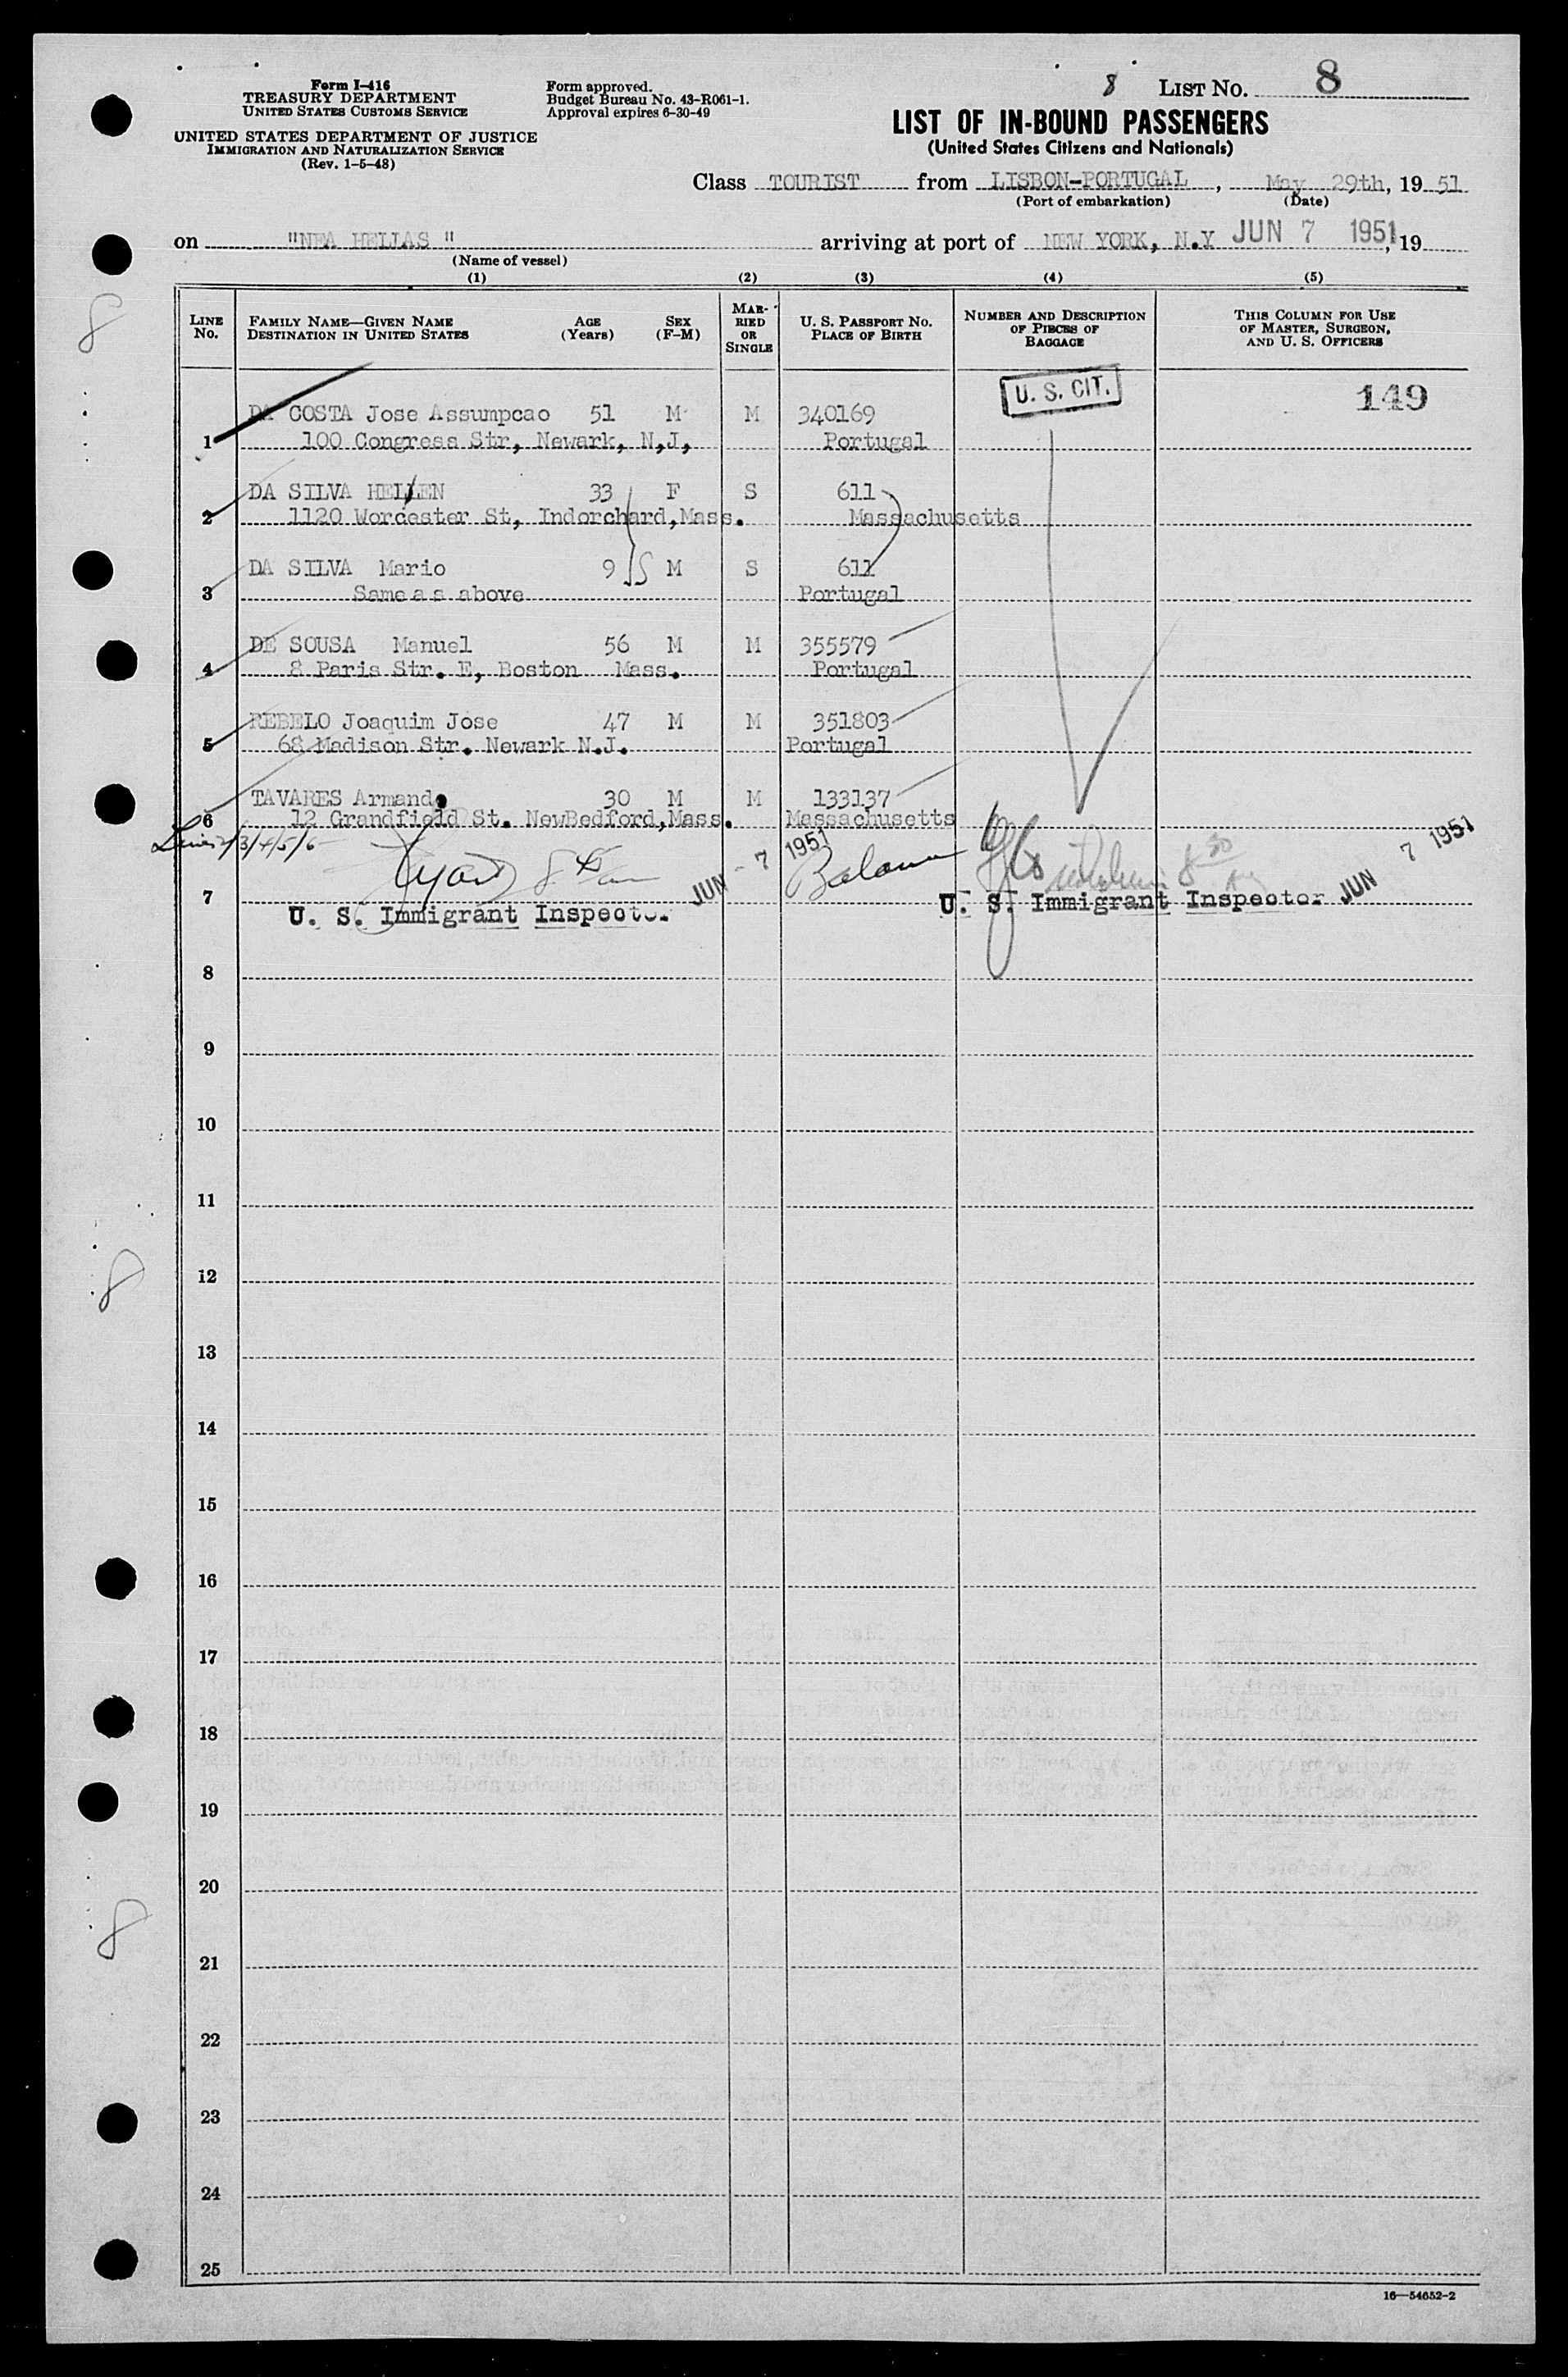 Form I-416
TREASURY DEPARTMENT
UNITED STATES CUSTOMS SERVICE
UNITED STATES DEPARTMENT OF JUSTICE
IMMIGRATION AND NATURALIZATION SERVICE
(Rev. 1-5-48)
Form approved.
Budget Bureau No. 43-R061-1.
Approval expires 6-30-49
8 LIST No. 8
LIST OF IN-BOUND PASSENGERS
(United States Citizens and Nationals)
Class TOURIST from LISBON-PORTUGAL, May 29th, 19 51
(Port of embarkation) (Date)
on "NEA HELLAS " arriving at port of NEW YORK, N.Y JUN 7 1951, 19
(Name of vessel)
(1) (2) (3) (4) (5)
LINE No. FAMILY NAME—GIVEN NAME DESTINATION IN UNITED STATES AGE (Years) SEX (F-M) MARRIED OR SINGLE U. S. PASSPORT No. PLACE OF BIRTH NUMBER AND DESCRIPTION OF PIECES OF BAGGAGE THIS COLUMN FOR USE OF MASTER, SURGEON, AND U. S. OFFICERS
8
U. S. CIT. 149
DA COSTA Jose Assumpcao 51 M M 340169
1 100 Congress Str, Newark, N,J, Portugal
DA SILVA HELLEN 33 F S 611
2 1120 Worcester St, Indorchard,Mass. Massachusetts
DA SILVA Mario 9 S M S 611
3 Same as above Portugal
DE SOUSA Manuel 56 M M 355579
4 8 Paris Str. E, Boston Mass. Portugal
REBELO Joaquim Jose 47 M M 351803
5 68 Madison Str. Newark N.J. Portugal
TAVARES Armando 30 M M 133137
6 12 Grandfield St. NewBedford,Mass. Massachusetts
Lines 2/3/4/5/6
JUN - 7 1951 JUN 7 1951
7 U. S. Immigrant Inspector U. S. Immigrant Inspector
8
9
10
11
12
8
13
14
15
16
17
18
19
20
8
21
22
23
24
25
16—54652-2